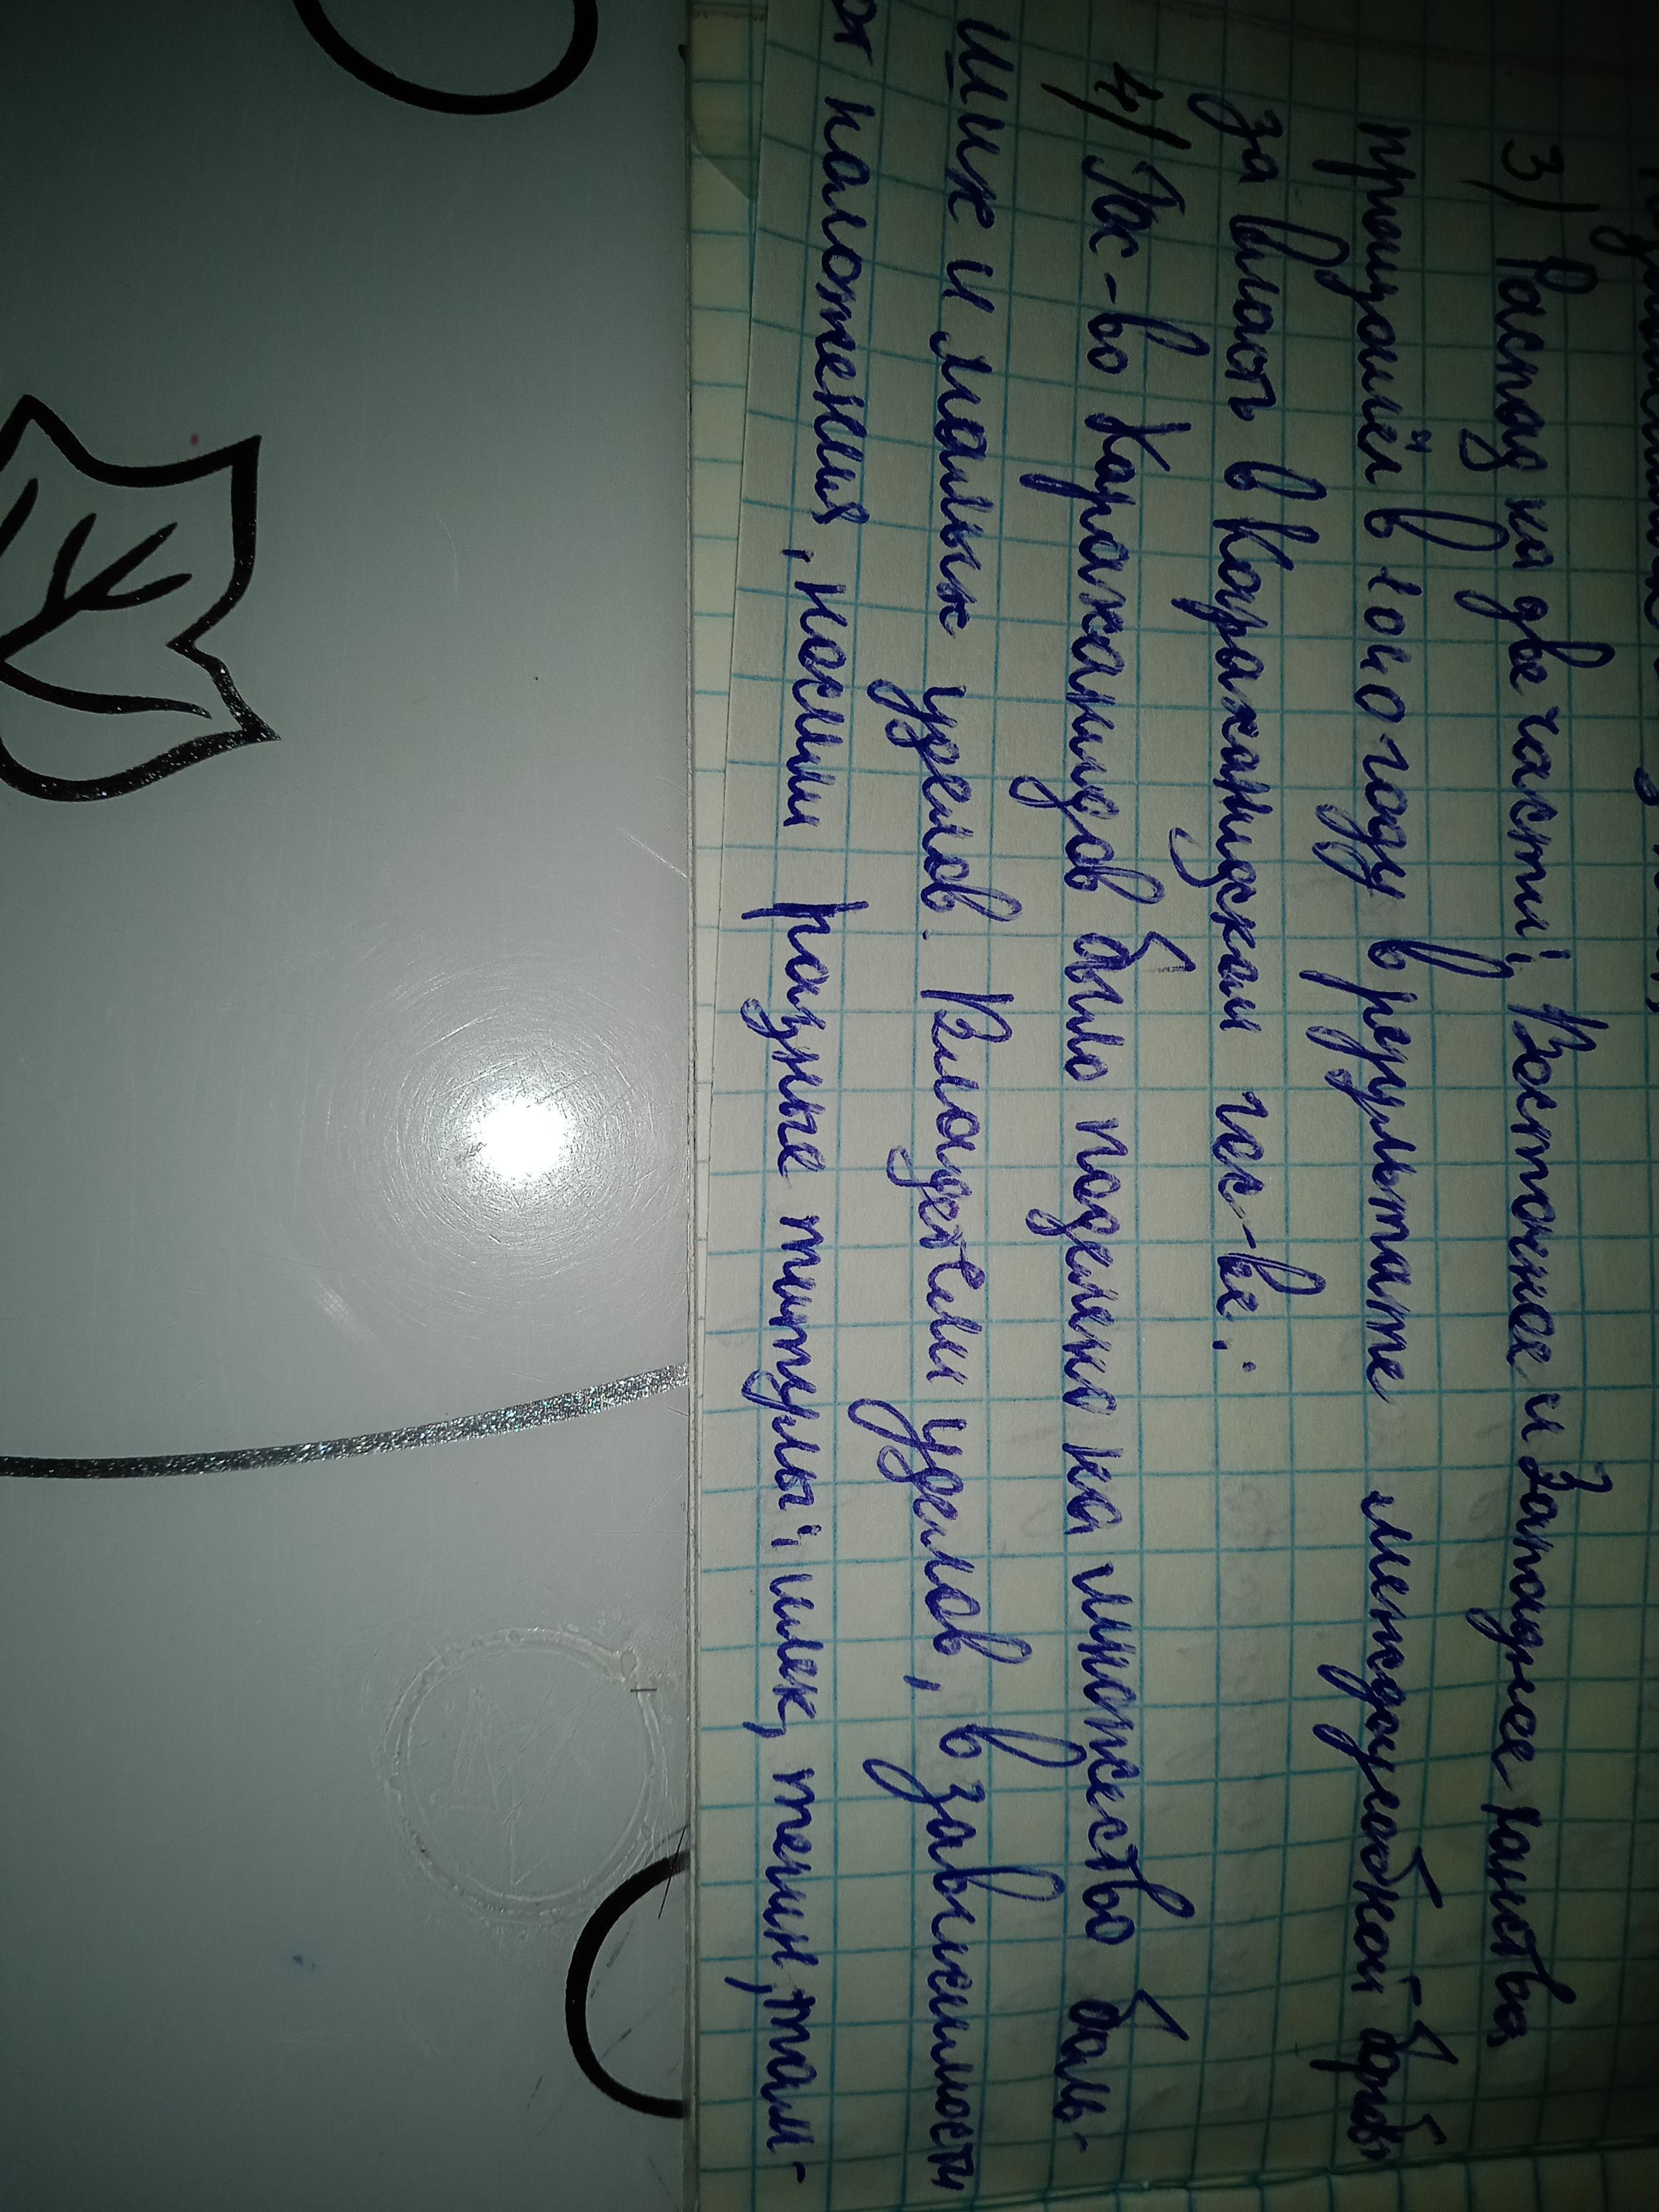 3) Распад на две части: Восточное и Западное ханства
произошёл в 1040 году в результате междоусобной борьбы
за власть в Караханидском гос-ве.
4) Гос-во Караханидов было поделено на множество боль-
ших и малых уделов. Владетели уделов, в зависимости
от положения, носили разные титулы: илек, тегин, там-